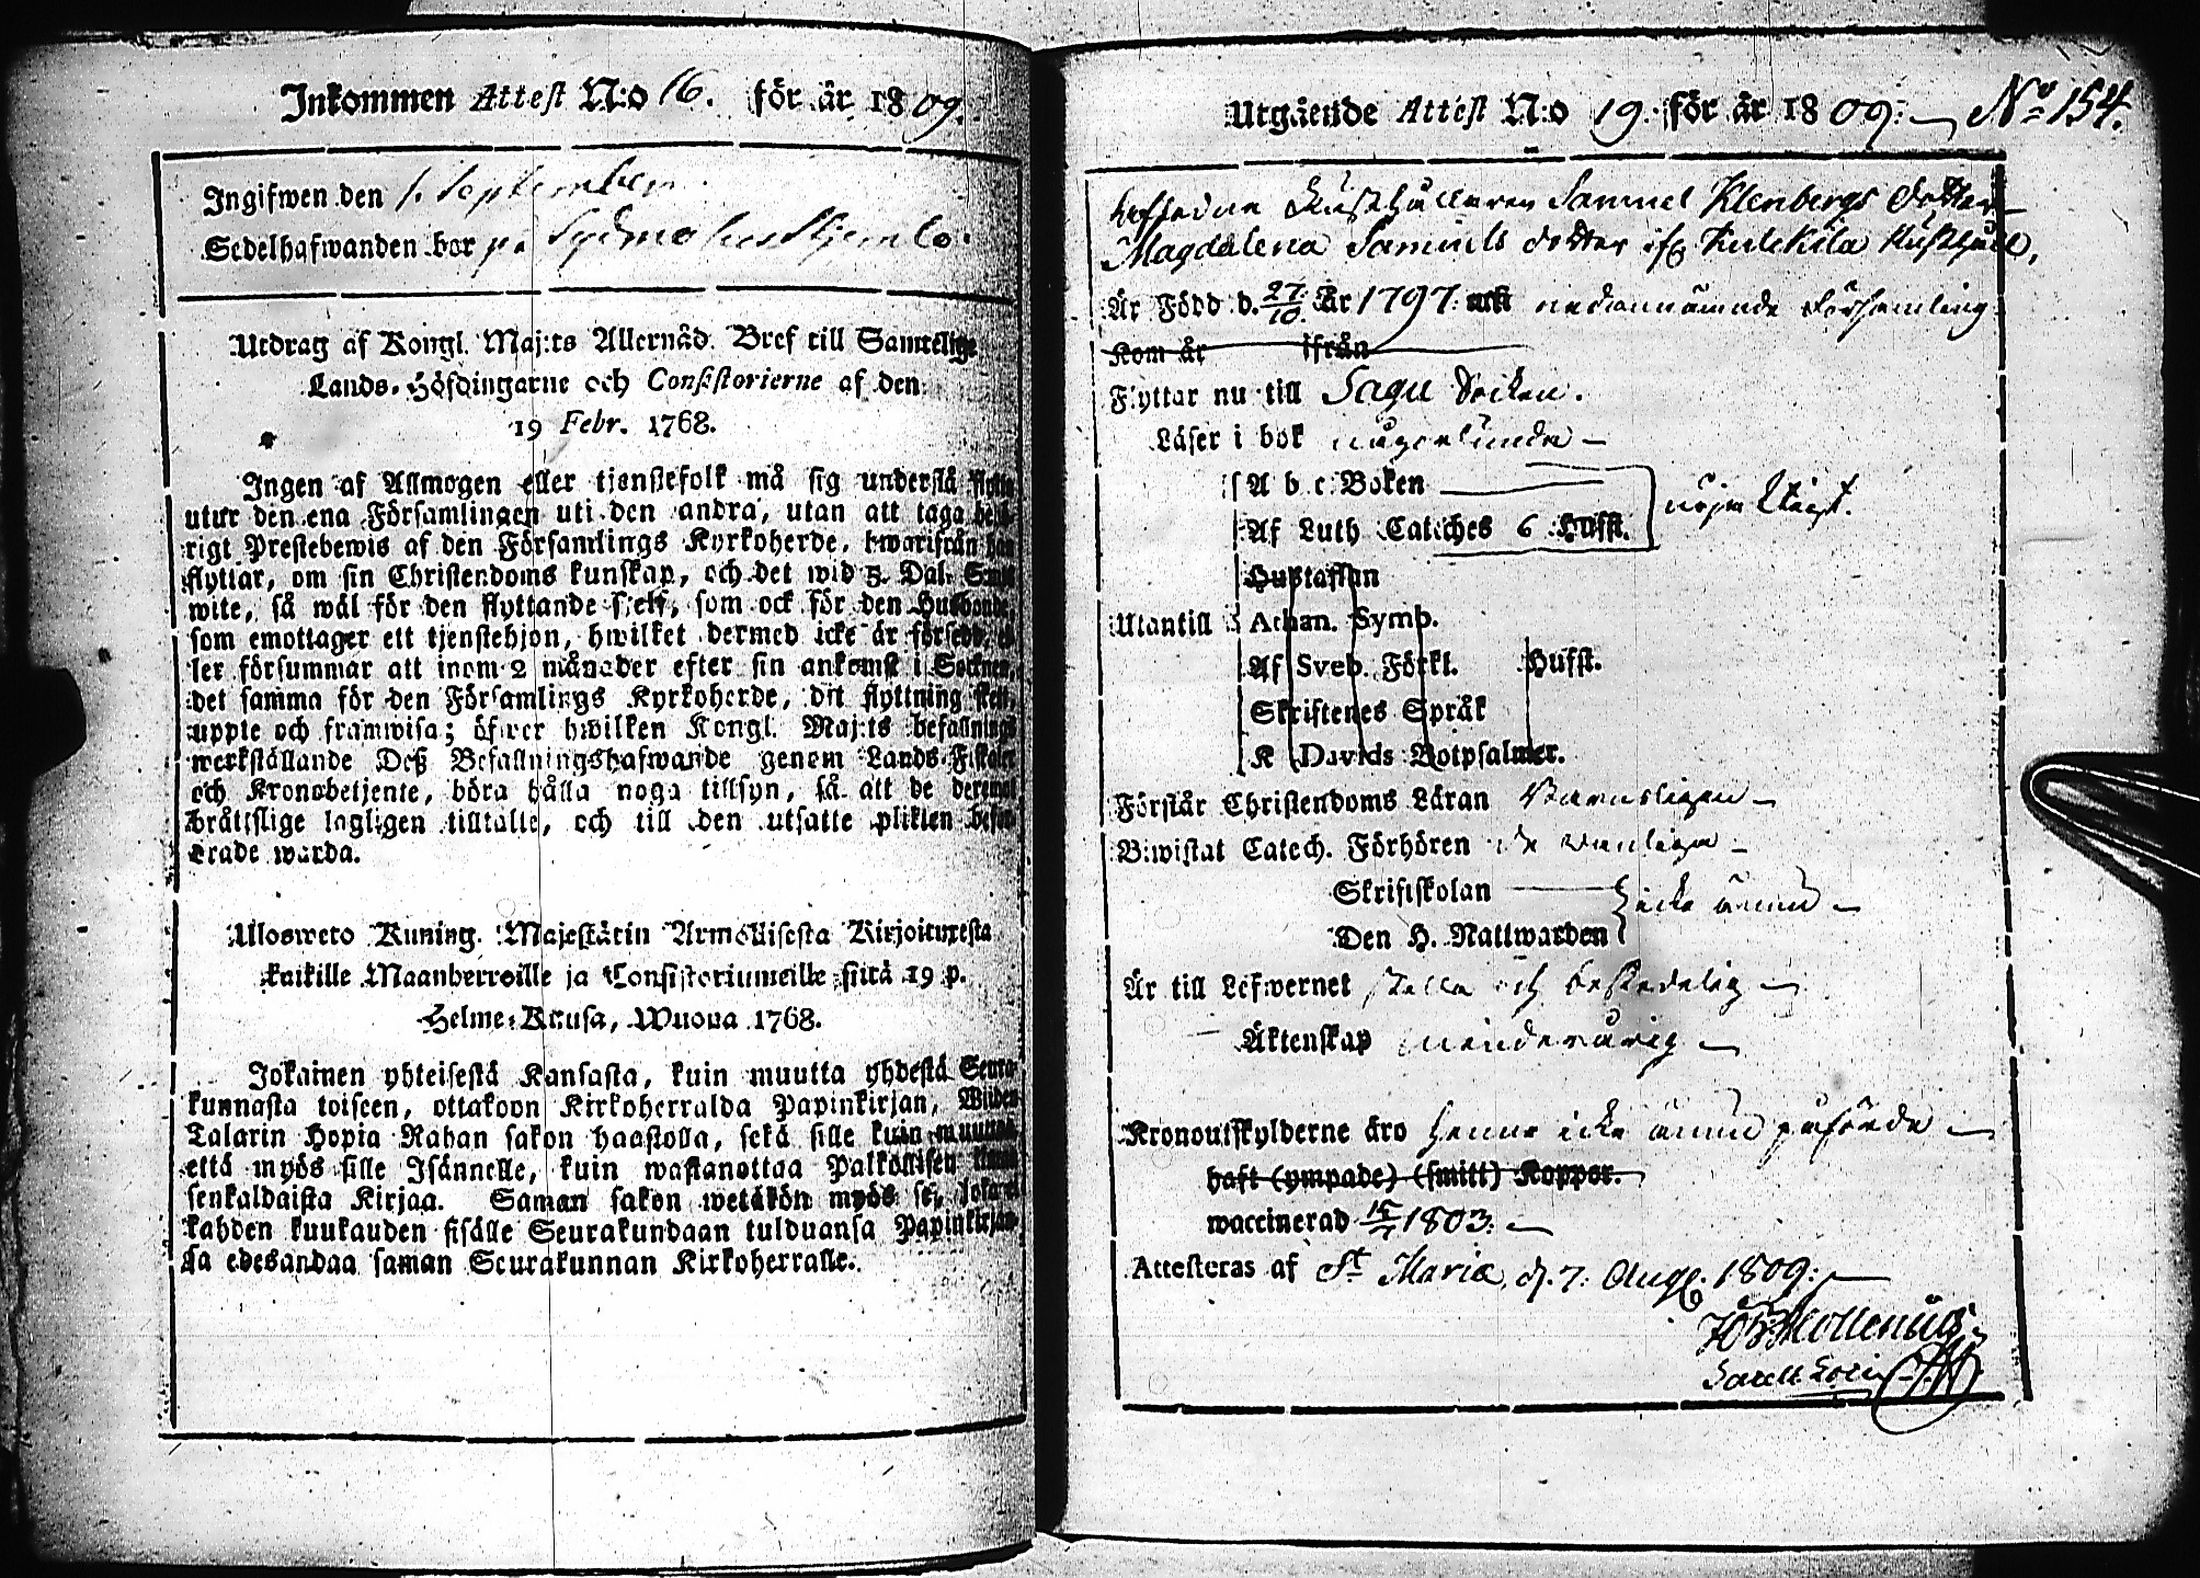 Inkommen Attest N:o 16. för år 1809.
Ingifwen den 1. September
Sedelhafwanden bor på
Utdrag af Kongl. Maj:ts Allernåd. Bref till Samtelige
Lands-Höfdingarne och Consistorierne af den
19 Febr. 1768.
Ingen af Allmogen eller tjenstefolk må sig understå flytta
utur den ena Församlingen uti den andra, utan att taga
rigt Prestebewis af den Församlings Kyrkoherde, hwarifrån han
flyttar, om sin Christendoms kunskap, och det wid 3. Dal. Smt
wite, så wäl för den flyttande sjelf, som ock för den Husbonde,
som emottager ett tjenstehjon, hwilket dermed icke är försedt, el
ler försummar att inom 2 månader efter sin ankomst i Socknen,
det samma för den Församlings Kyrkoherde, dit flyttning skett,
uppte och framwisa; öfwer hwilken Kongl. Maj:ts befallnings
werkställande Deß Befallningshafwande genom Lands-Fiskaler
och Kronobetjente, böra hålla noga tillsyn, så att de deremot
bråttslige lagligen tilltalte, och till den utsatte plikten befor
drade warda.
Ulosweto Kuning. Majestätin Armollisesta Kirjoituxesta
kaikille Maanherroille ja Consistoriumeille siitä 19 p.
Helme-Kuusa, Wuona 1768.
Jokainen yhteisestä Kansasta, kuin muutta yhdestä Seura
kunnasta toiseen, ottakoon Kirkoherralda Papinkirjan, Wiiden
Talarin Hopia Rahan sakon haastolla, sekä sille kuin muutta,
että myös sille Isännelle, kuin wastanottaa Palkollisen
senkaldaista Kirjaa. Saman sakon wetäkön myös se, joka ei
kahden kuukauden sisälle Seurakundaan tulduansa Papinkirjan
sa edesandaa saman Seurakunnan Kirkoherralle.
Utgående Attest N:o 19. för år 1809. N:o 154.
Rusthållaren Samuel Klenbergs dotter
Magdalena Samuels dotter ifr. Rusthåll,
Är Född d. 27/10 År 1797. uti nedannämnde Församling
Kom år ifrån
Flyttar nu till Sagu Socken.
Läser i bok
A b c Boken
Af Luth Catéches 6 Hufst. nöjaktigt.
Hustaflan
Utantill Athan. Symb.
Af Sveb. Förkl. Hufst.
Skriftenes Språk
K Davids Botpsalmer.
Förstår Christendoms Läran Barnsligen
Biwistat Catech. Förhören de vanliga
Skriftskolan
Den H. Nattwarden icke ännu
Är till Lefwernet stilla och beskedelig
Äktenskap minderårig
Kronoutskylderne äro henne icke ännu påförde
haft (ympade) (smitt) Koppor.
waccinerad 15/7 1803.
Attesteras af St Mariæ, d. 7. Aug. 1809.